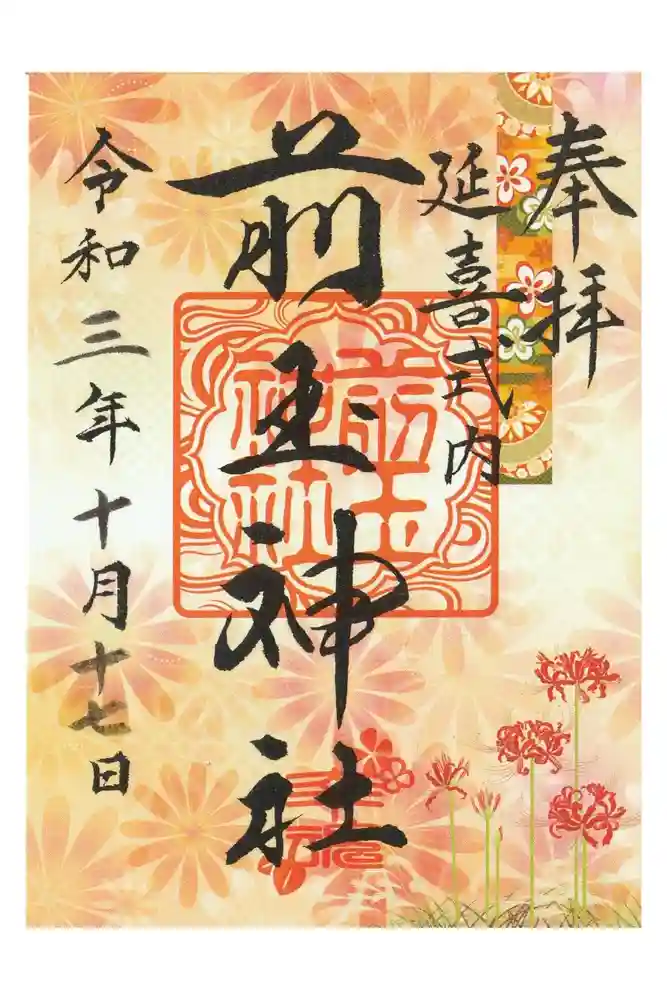 奉拝
延喜式内
前玉神社
前玉
神社
令和三年十月十七日